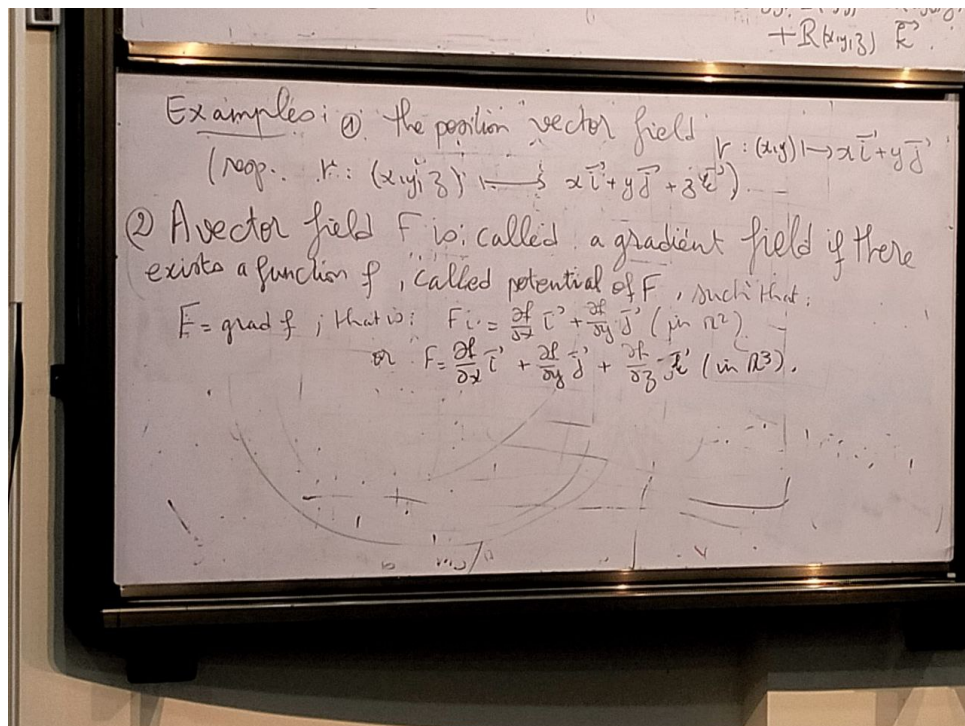 + R(x,y,z) k⃗.
Examples: ① the position vector field r : (x,y) ↦ x i⃗ + y j⃗
(resp. r : (x,y,z) ↦ x i⃗ + y j⃗ + z k⃗).
② A vector field F is called a gradient field if there
exists a function f, called potential of F, such that:
F = grad f ; that is: F = ∂f/∂x i⃗ + ∂f/∂y j⃗ (in R²)
or F = ∂f/∂x i⃗ + ∂f/∂y j⃗ + ∂f/∂z k⃗ (in R³).